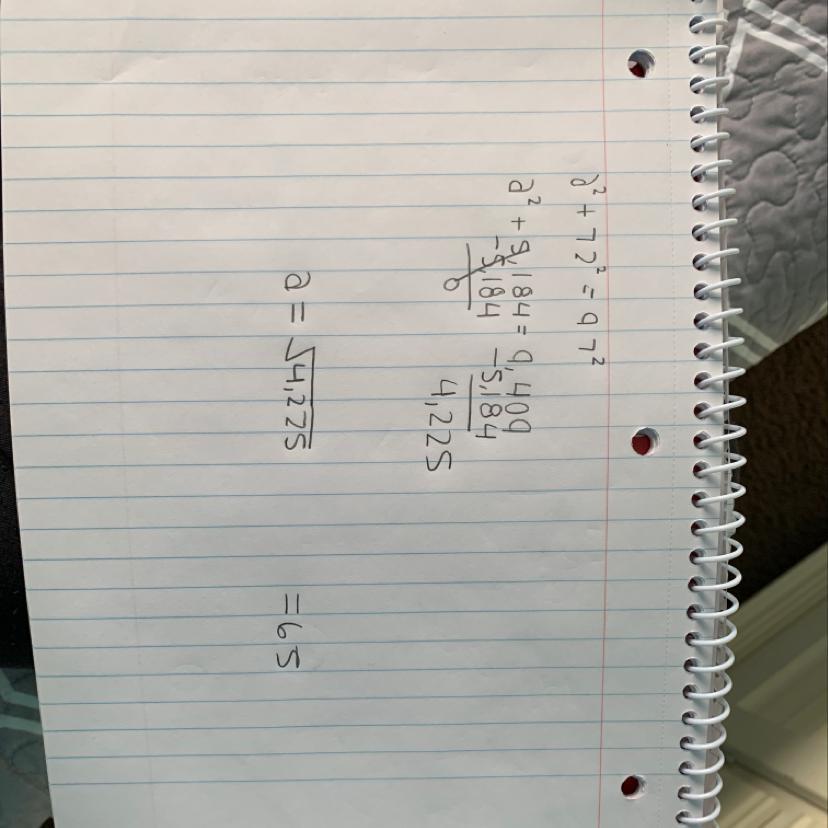 a² + 72² = 97²
a² + 5,184 = 9,409
-5,184 -5,184
0 4,225
a = √4,225 = 65